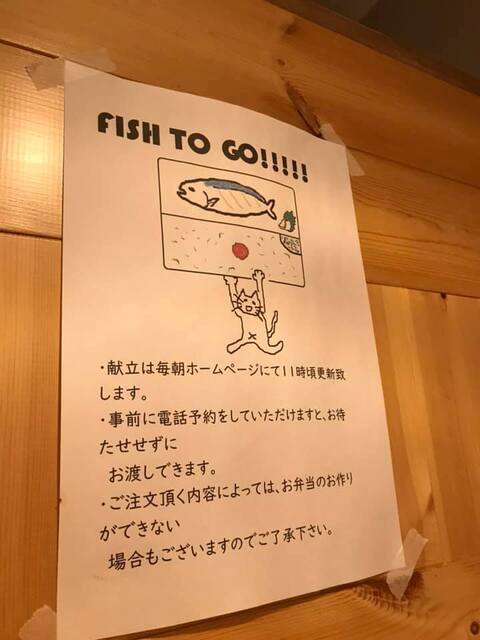 FISH TO GO!!!!!
・献立は毎朝ホームページにて11時頃更新致
します。
・事前に電話予約をしていただけますと、お待
たせせずに
お渡しできます。
・ご注文頂く内容によっては、お弁当のお作り
ができない
場合もございますのでご了承下さい。